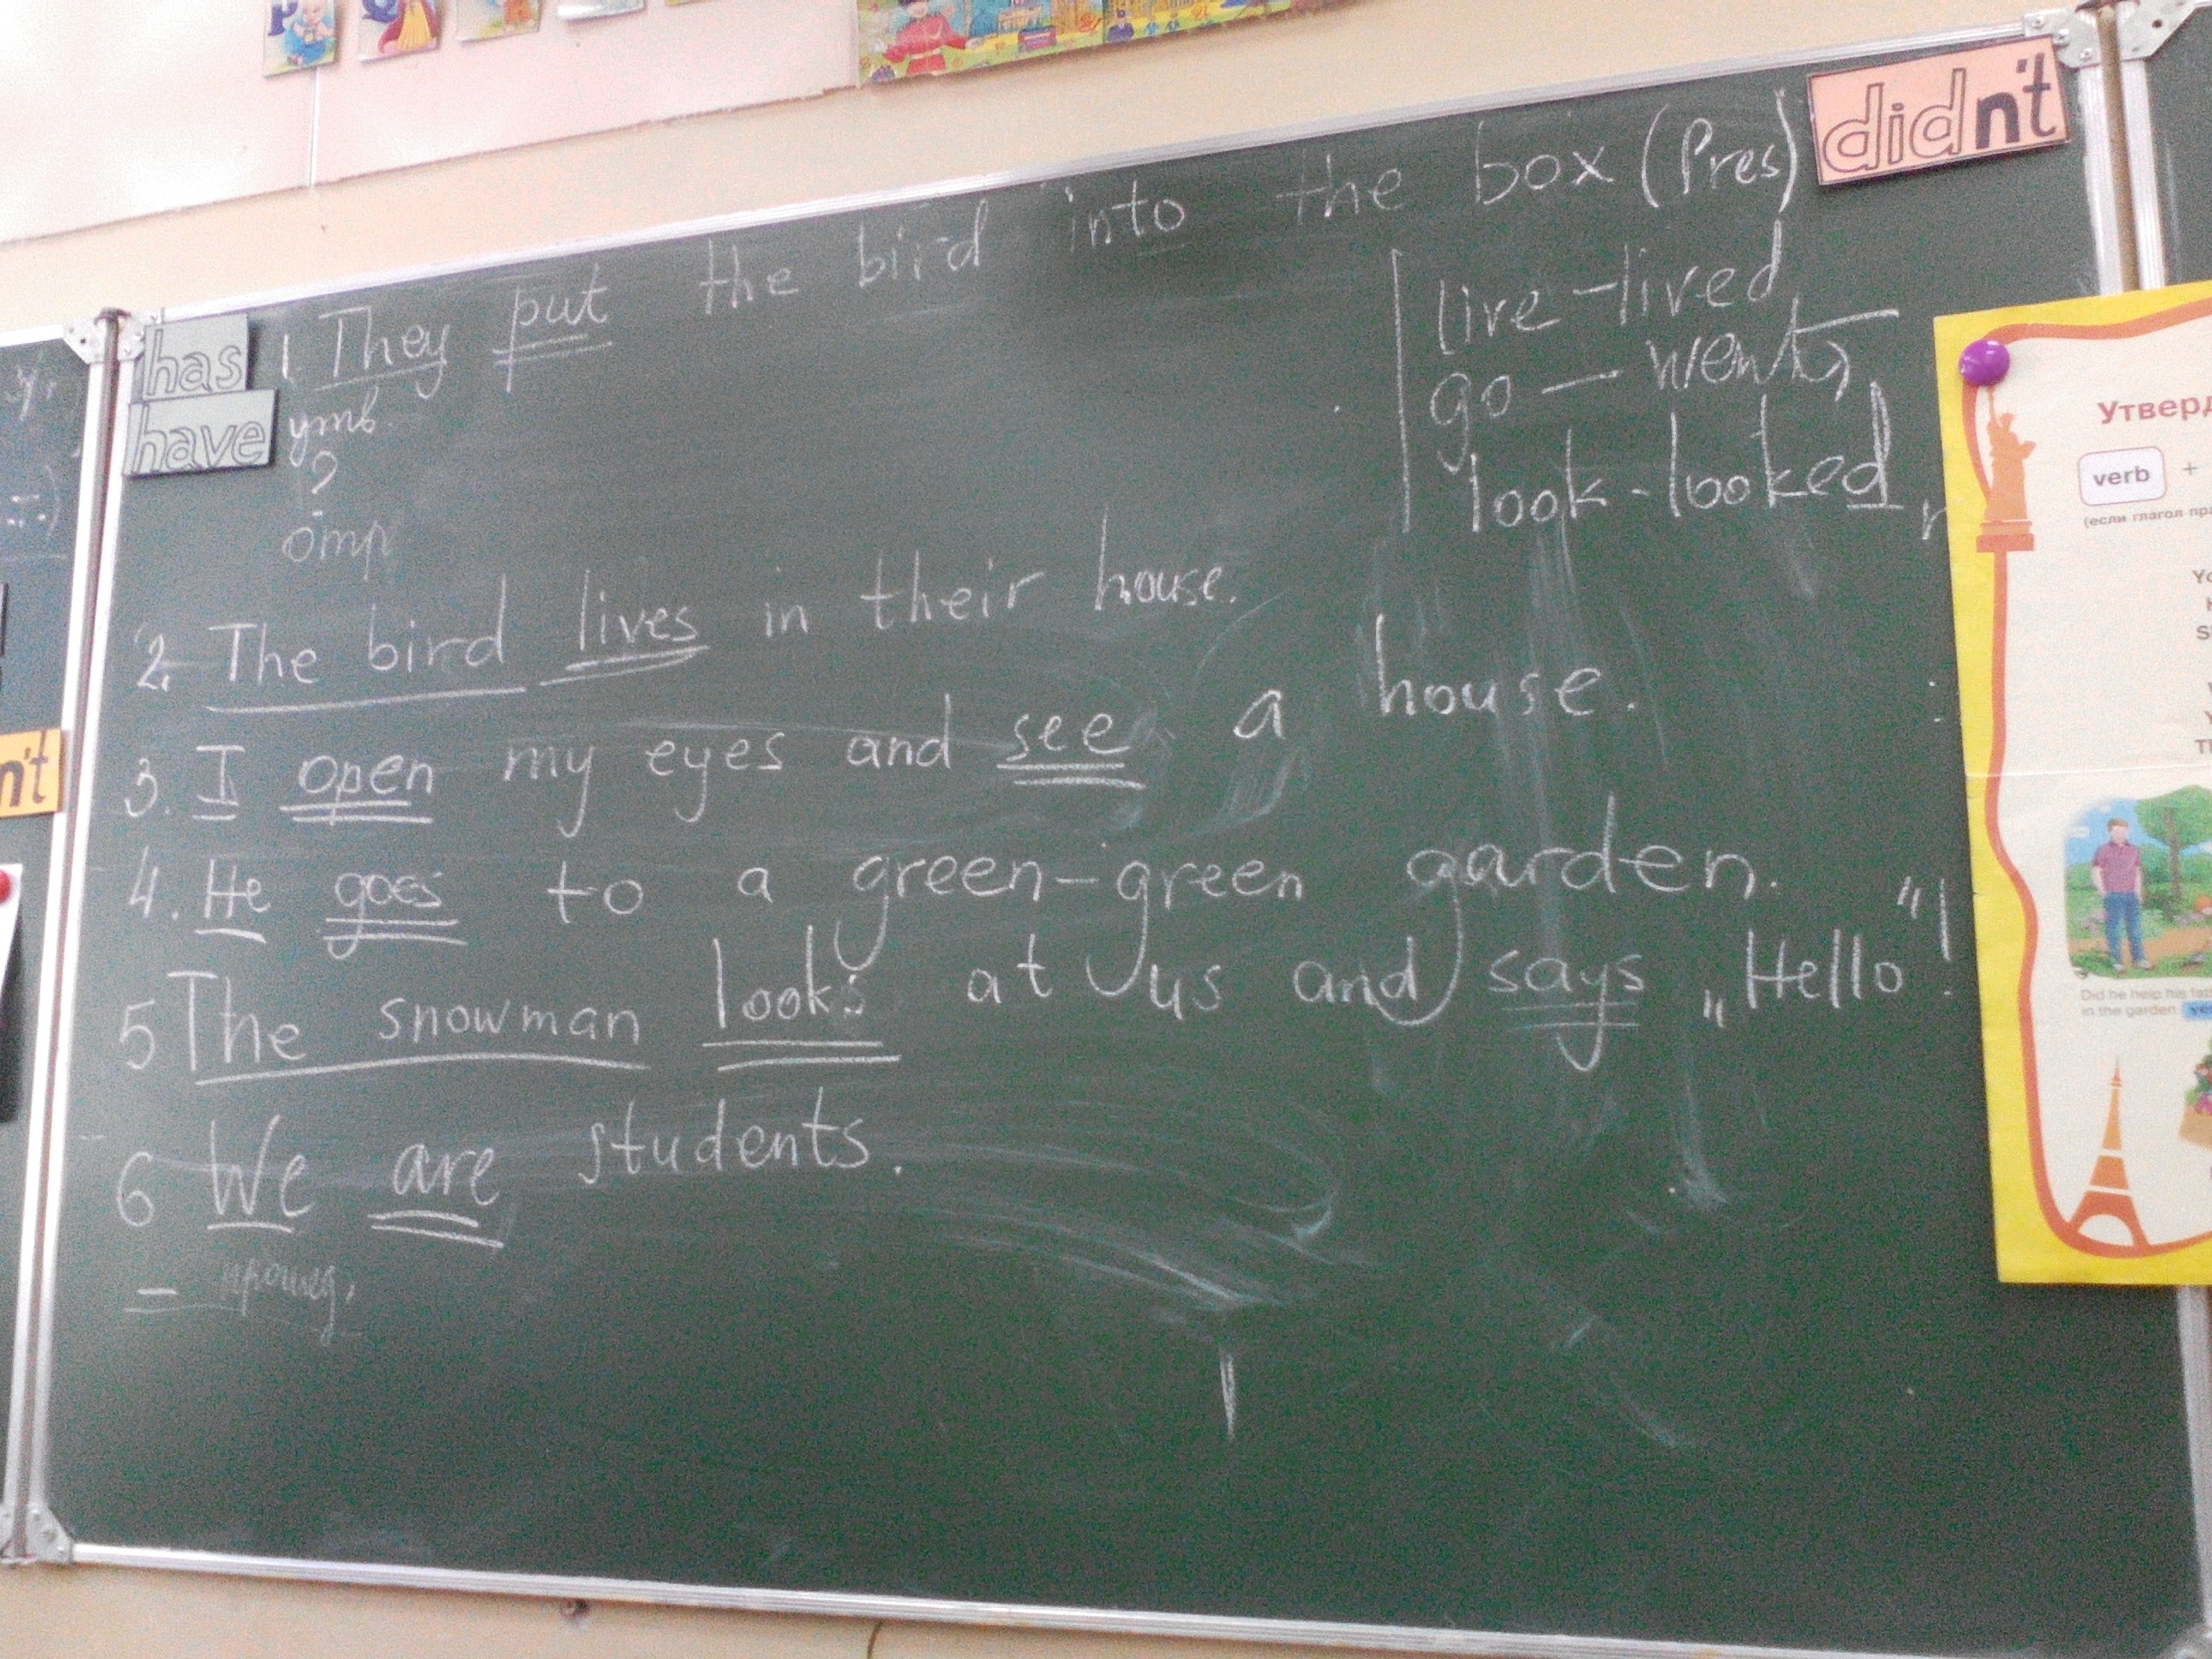 didn't
1. They put the bird into the box (Pres)
has
have
утв.
?
отр
live - lived
go - went,
look - looked,
2. The bird lives in their house.
3. I open my eyes and see a house.
4. He goes to a green-green garden.
5 The snowman looks at us and says „Hello“!
6 We are students.
— прошед.
n't
Утверд
verb +
(если глагол пра
Did he help his fat
in the garden